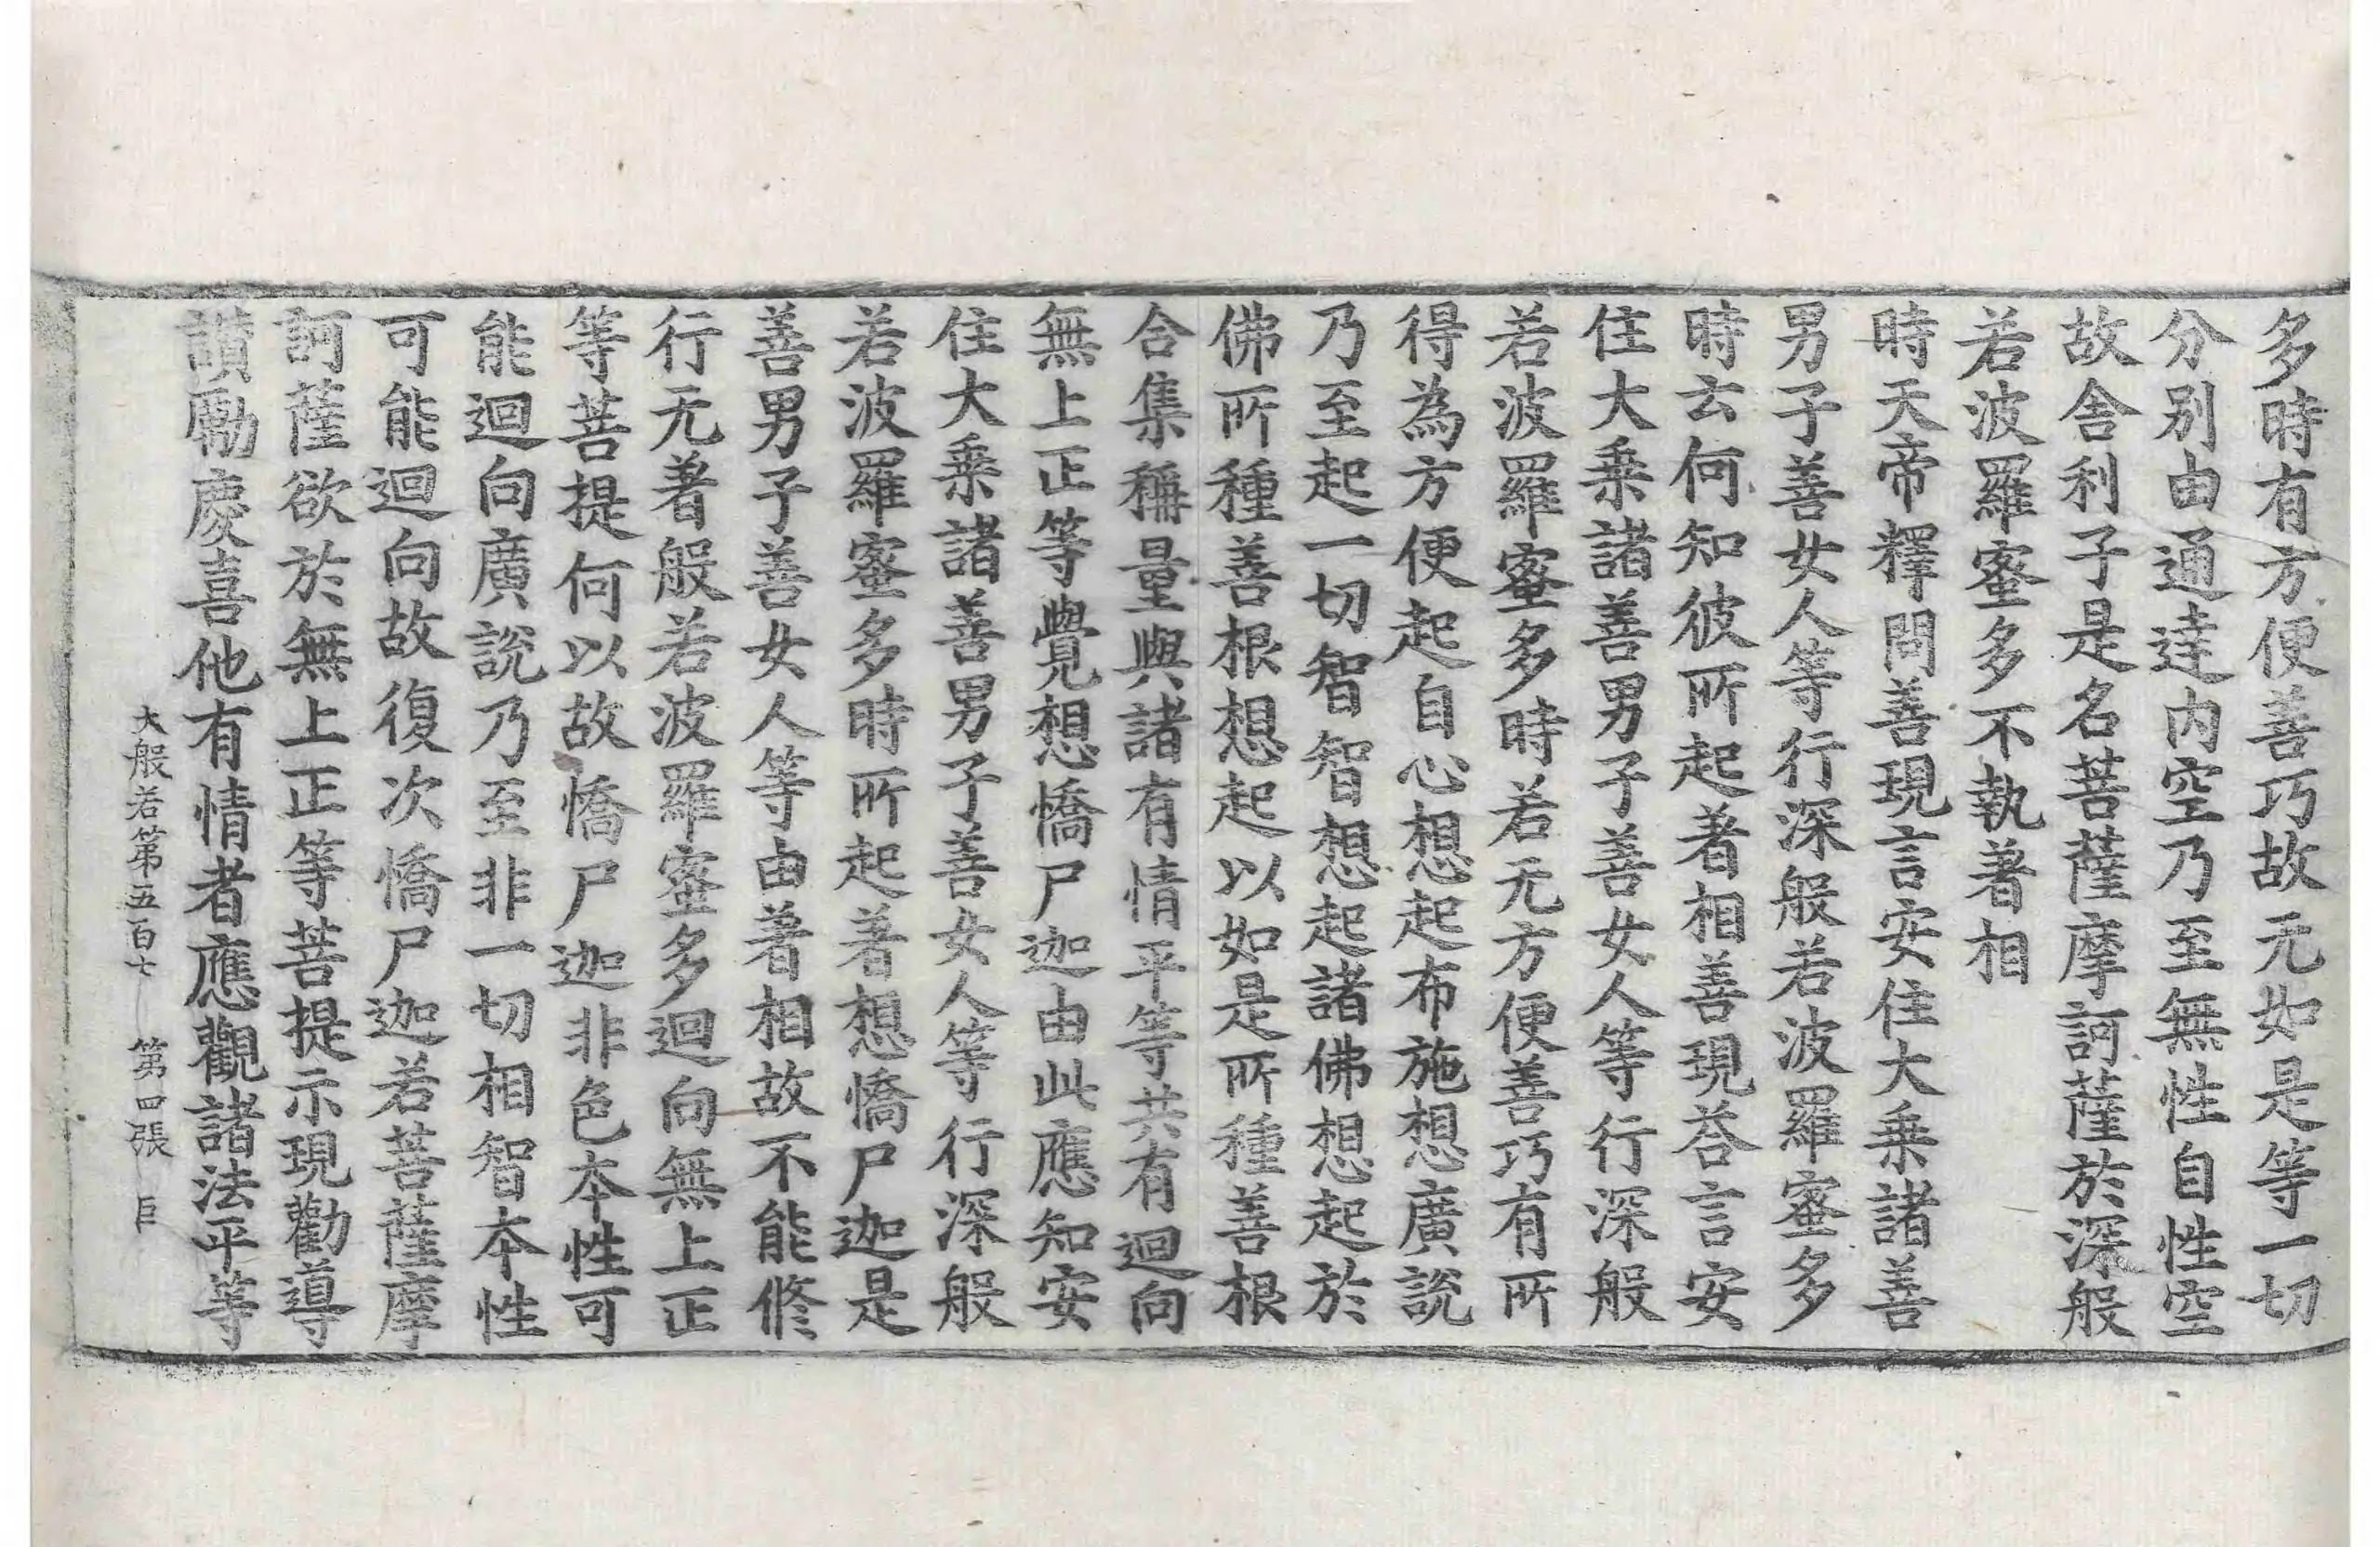 多時有方便善巧故无如是等一切
分别由通達内空乃至無性自性空
故舍利子是名菩薩摩訶薩於深般
若波羅蜜多不執著相
時天帝釋問善現言安住大乗諸善
男子善女人等行深般若波羅蜜多
時云何知彼所起著相善現荅言安
住大乗諸善男子善女人等行深般
若波羅蜜多時若无方便善巧有所
得為方便起自心想起布施想廣說
乃至起一切智智想起諸佛想起於
佛所種善根想起以如是所種善根
合集稱量與諸有情平等共有迴向
無上正等覺想憍尸迦由此應知安
住大乗諸善男子善女人等行深般
若波羅蜜多時所起著想憍尸迦是
善男子善女人等由著相故不能修
行无著般若波羅蜜多迴向無上正
等菩提何以故憍尸迦非色本性可
能迴向廣說乃至非一切相智本性
可能迴向故復次憍尸迦若菩薩摩
訶薩欲於無上正等菩提示現勸導
讃勵慶喜他有情者應觀諸法平等
大般若第五百七 第四張 巨